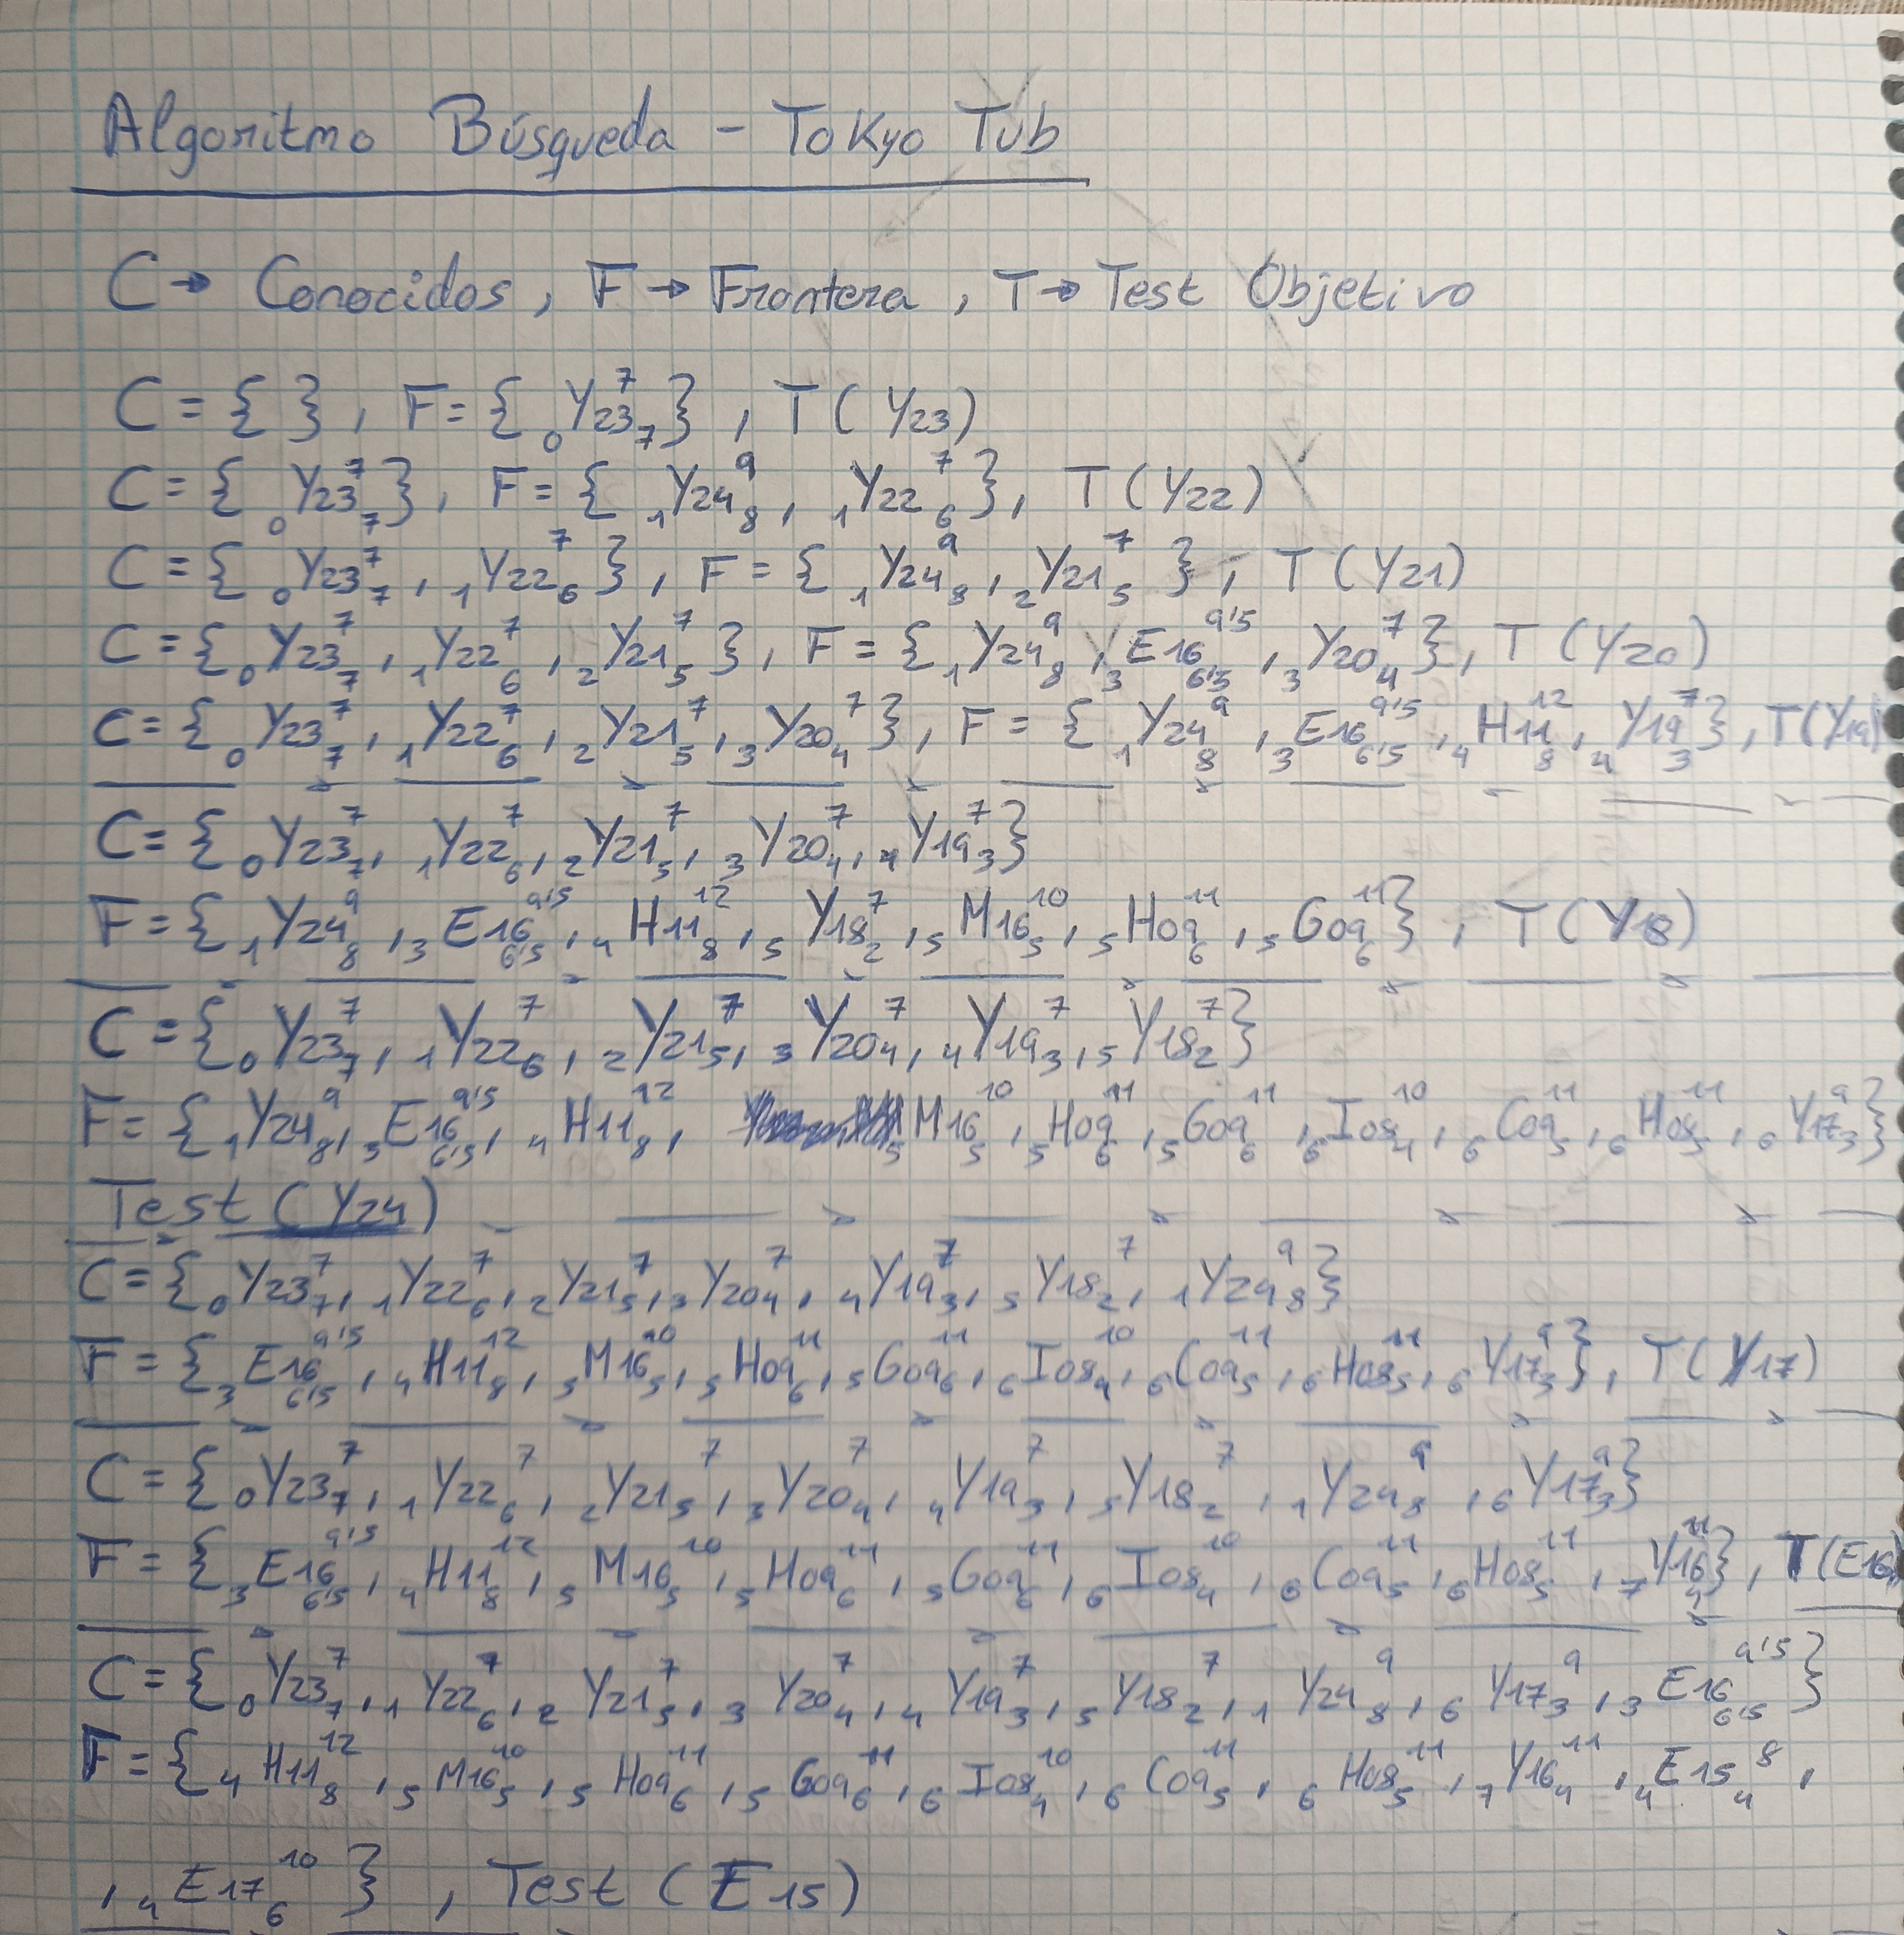 Algoritmo Búsqueda - Tokyo Tub
C → Conocidos, F → Frontera, T → Test Objetivo
C = { }, F = { ₀Y23₇⁷ }, T(Y23)
C = { ₀Y23₇⁷ }, F = { ₁Y24₈⁹, ₁Y22₆⁷ }, T(Y22)
C = { ₀Y23₇⁷, ₁Y22₆⁷ }, F = { ₁Y24₈⁹, ₂Y21₅⁷ }, T(Y21)
C = { ₀Y23₇⁷, ₁Y22₆⁷, ₂Y21₅⁷ }, F = { ₁Y24₈⁹, ₃E16₆'₅⁹'⁵, ₃Y20₄⁷ }, T(Y20)
C = { ₀Y23₇⁷, ₁Y22₆⁷, ₂Y21₅⁷, ₃Y20₄⁷ }, F = { ₁Y24₈⁹, ₃E16₆'₅⁹'⁵, ₄H11₈¹², ₄Y19₃⁷ }, T(Y19)
C = { ₀Y23₇⁷, ₁Y22₆⁷, ₂Y21₅⁷, ₃Y20₄⁷, ₄Y19₃⁷ }
F = { ₁Y24₈⁹, ₃E16₆'₅⁹'⁵, ₄H11₈¹², ₅Y18₂⁷, ₅M16₅¹⁰, ₅H09₆¹¹, ₅G09₆¹¹ }, T(Y18)
C = { ₀Y23₇⁷, ₁Y22₆⁷, ₂Y21₅⁷, ₃Y20₄⁷, ₄Y19₃⁷, ₅Y18₂⁷ }
F = { ₁Y24₈⁹, ₃E16₆'₅⁹'⁵, ₄H11₈¹², ₅M16₅¹⁰, ₅H09₆¹¹, ₅G09₆¹¹, ₆I08₄¹⁰, ₆C09₅¹¹, ₆H08₅¹¹, ₆Y17₃⁹ }
Test (Y24)
C = { ₀Y23₇⁷, ₁Y22₆⁷, ₂Y21₅⁷, ₃Y20₄⁷, ₄Y19₃⁷, ₅Y18₂⁷, ₁Y24₈⁹ }
F = { ₃E16₆'₅⁹'⁵, ₄H11₈¹², ₅M16₅¹⁰, ₅H09₆¹¹, ₅G09₆¹¹, ₆I08₄¹⁰, ₆C09₅¹¹, ₆H08₅¹¹, ₆Y17₃⁹ }, T(Y17)
C = { ₀Y23₇⁷, ₁Y22₆⁷, ₂Y21₅⁷, ₃Y20₄⁷, ₄Y19₃⁷, ₅Y18₂⁷, ₁Y24₈⁹, ₆Y17₃⁹ }
F = { ₃E16₆'₅⁹'⁵, ₄H11₈¹², ₅M16₅¹⁰, ₅H09₆¹¹, ₅G09₆¹¹, ₆I08₄¹⁰, ₆C09₅¹¹, ₆H08₅¹¹, ₇Y16₄¹¹ }, T(E16)
C = { ₀Y23₇⁷, ₁Y22₆⁷, ₂Y21₅⁷, ₃Y20₄⁷, ₄Y19₃⁷, ₅Y18₂⁷, ₁Y24₈⁹, ₆Y17₃⁹, ₃E16₆'₅⁹'⁵ }
F = { ₄H11₈¹², ₅M16₅¹⁰, ₅H09₆¹¹, ₅G09₆¹¹, ₆I08₄¹⁰, ₆C09₅¹¹, ₆H08₅¹¹, ₇Y16₄¹¹, ₄E15₄⁸,
, ₄E17₆¹⁰ }, Test (E15)